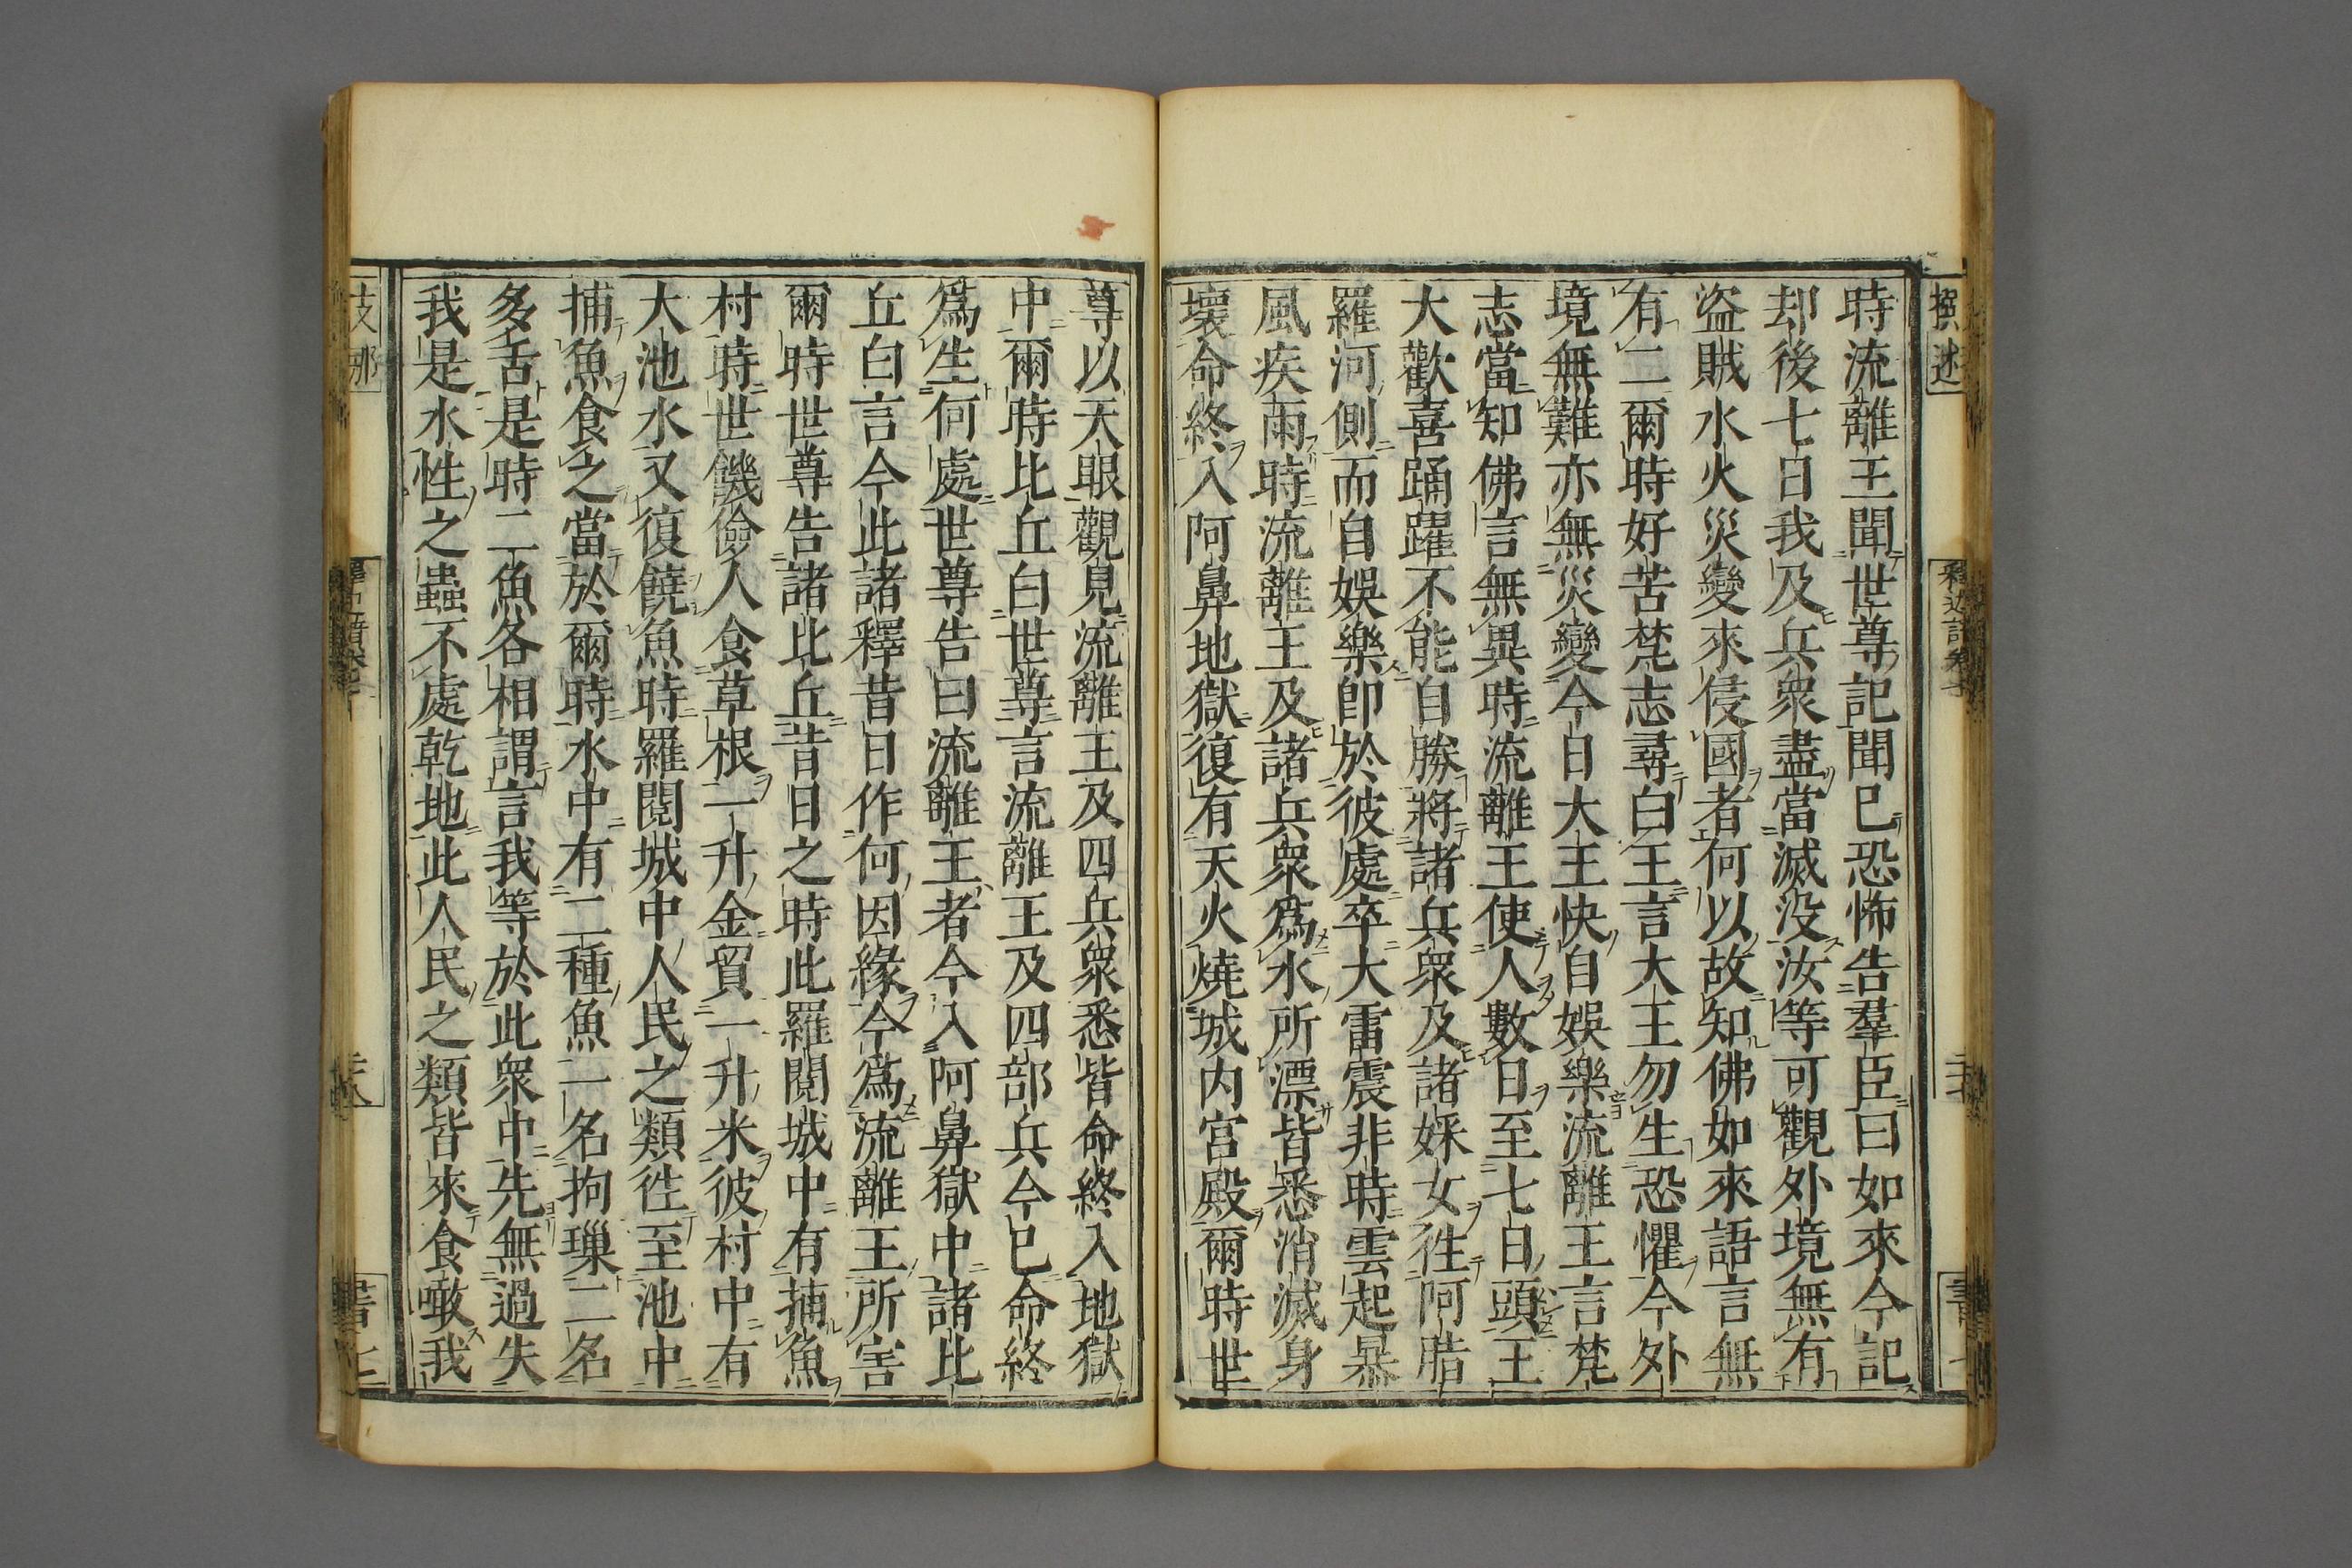 撰述
時流離王聞世尊記聞已恐怖告羣臣曰如來今記
却後七日我及兵衆盡當滅沒汝等可觀外境無有
盜賊水火災變來侵國者何以故知佛如來語言無
有二爾時好苦梵志尋白王言大王勿生恐懼今外
境無難亦無災變今日大王快自娛樂流離王言梵
志當知佛言無異時流離王使人數日至七日頭王
大歡喜踊躍不能自勝將諸兵衆及諸婇女徃阿脂
羅河側而自娛樂卽於彼處卒大雷震非時雲起暴
風疾雨時流離王及諸兵衆爲水所漂皆悉消滅身
壞命終入阿鼻地獄復有天火燒城内宫殿爾時世
尊以天眼觀見流離王及四兵衆悉皆命終入地獄
中爾時比丘白世尊言流離王及四部兵今已命終
爲生何處世尊告曰流離王者今入阿鼻獄中諸比
丘白言今此諸釋昔日作何因緣今爲流離王所害
爾時世尊告諸比丘昔日之時此羅閱城中有捕魚
村時世饑儉人食草根一升金貿一升米彼村中有
大池水又復饒魚時羅閱城中人民之類徃至池中
捕魚食之當於爾時水中有二種魚一名拘璅二名
多舌是時二魚各相謂言我等於此衆中先無過失
我是水性之蟲不處乾地此人民之類皆來食噉我